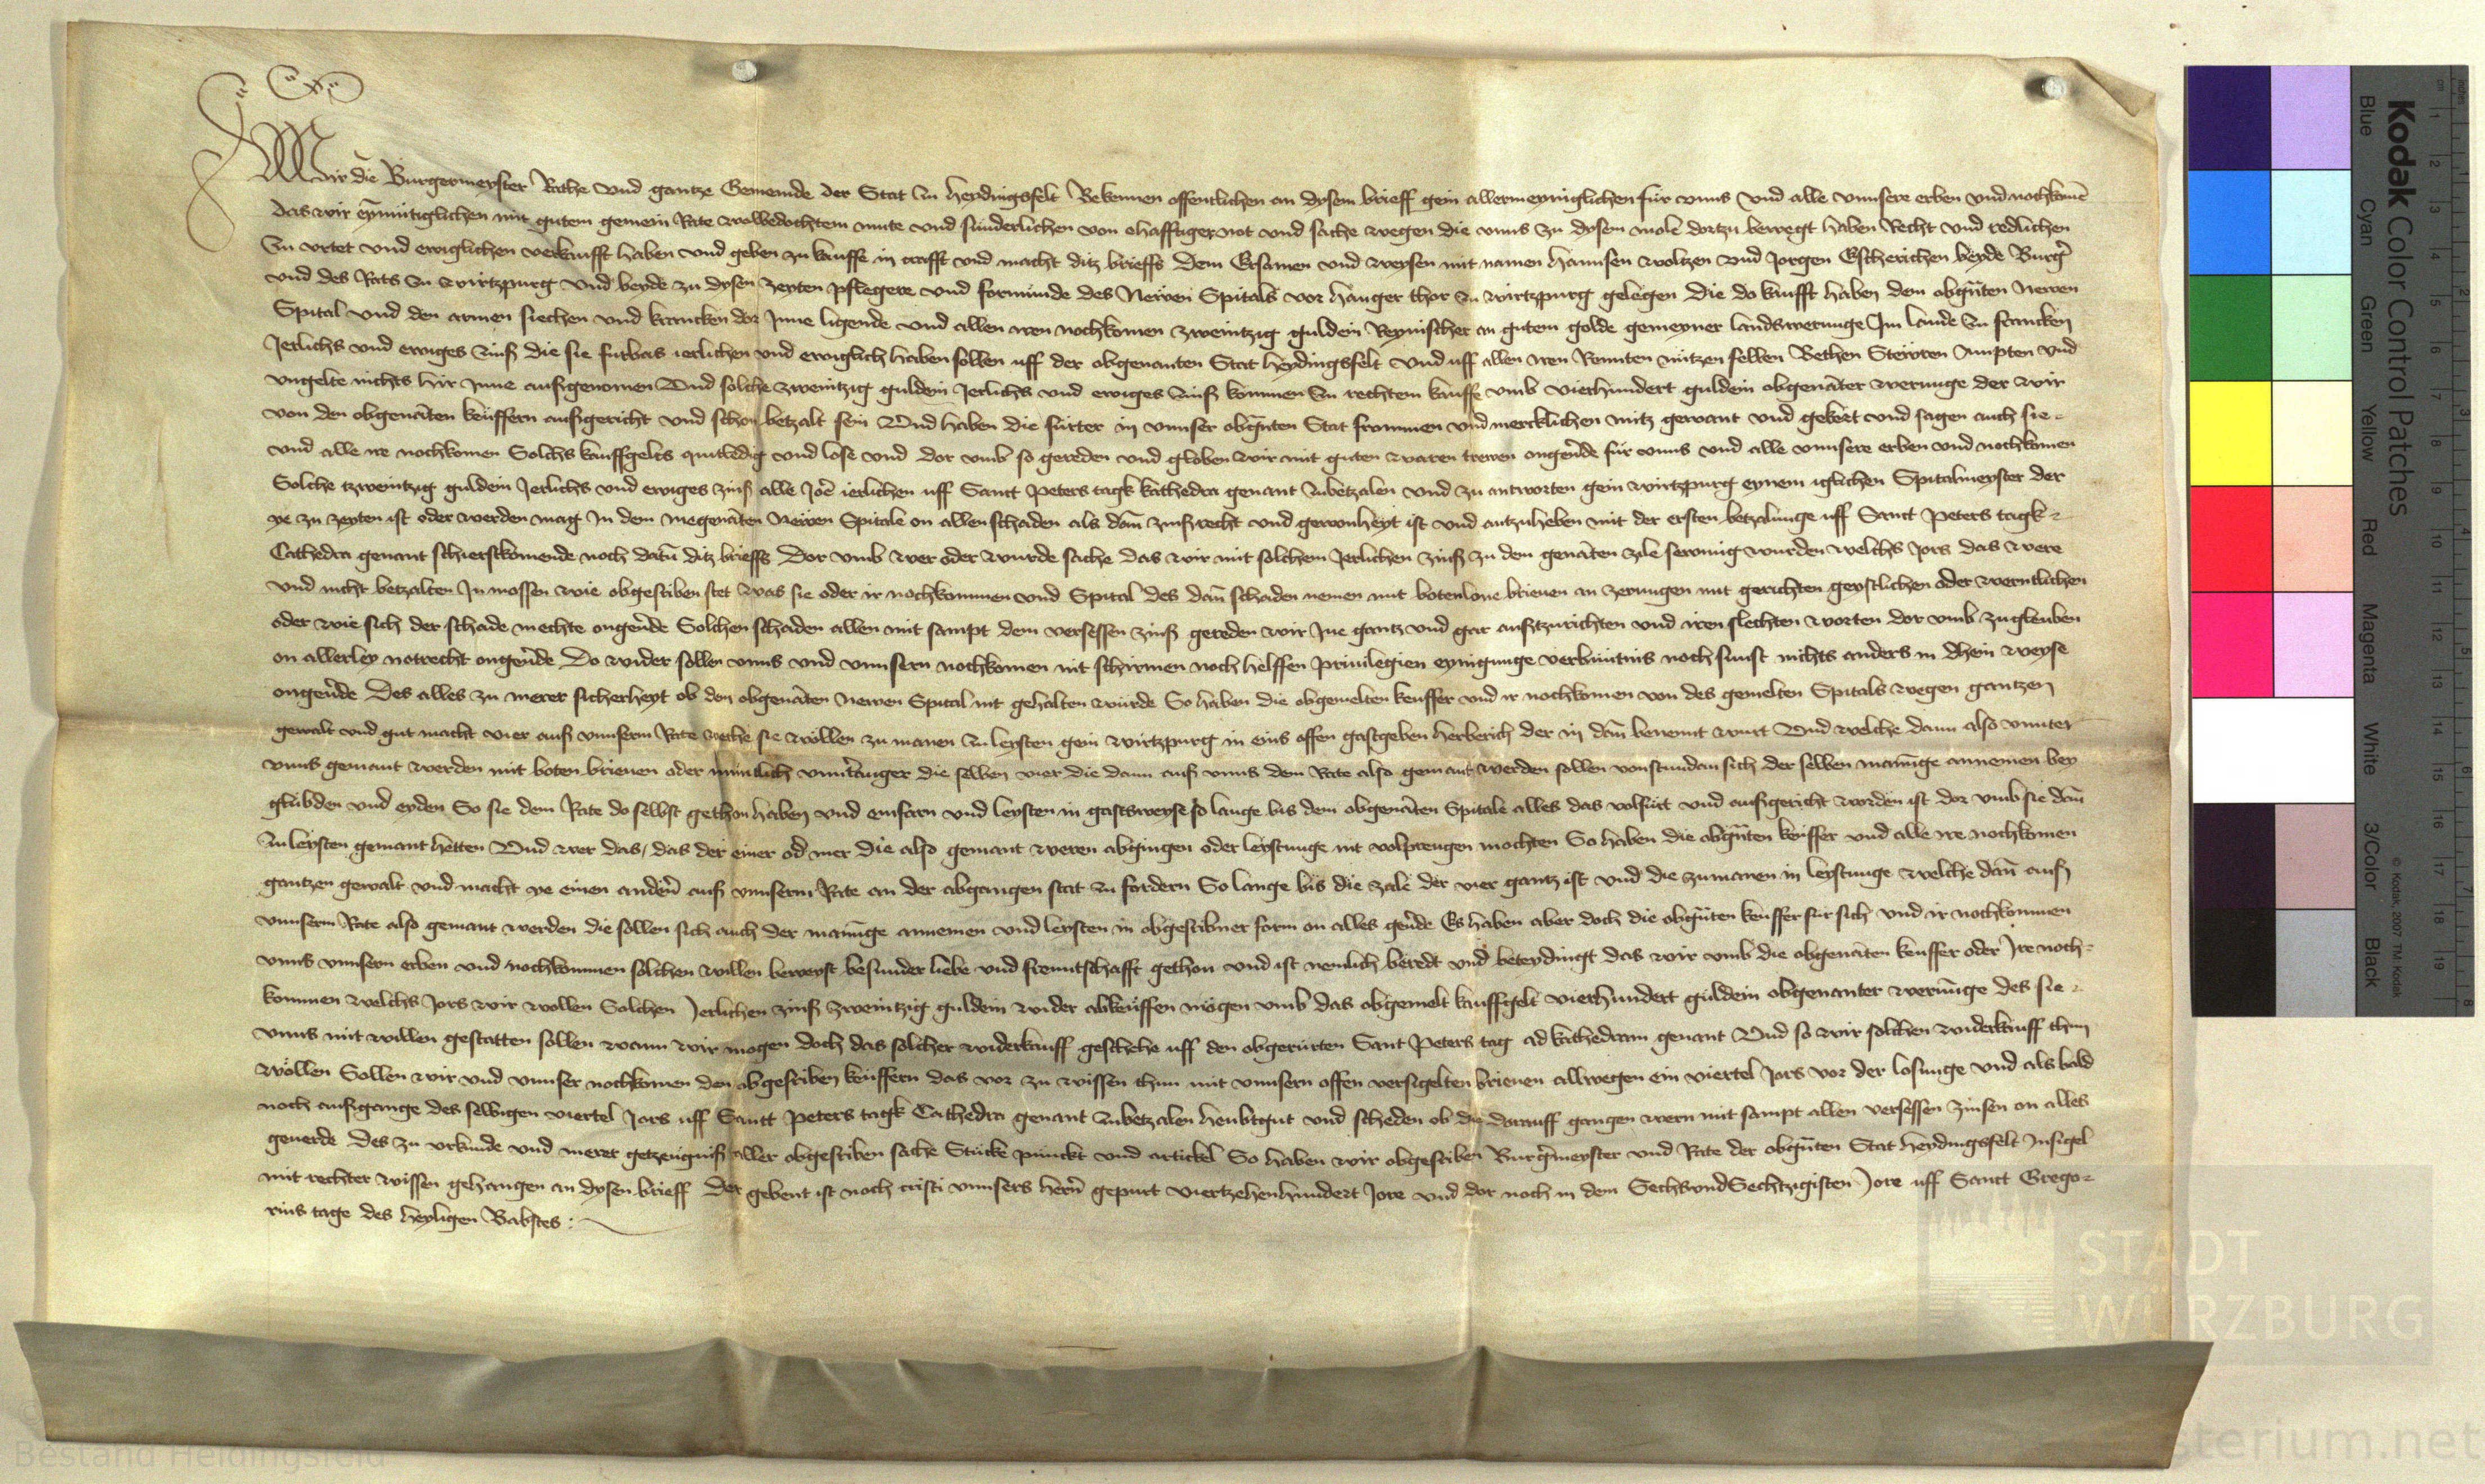 Wir die Burgermeyster Rathe vnd gantze Gemeinde der Stat zu Heydingsfelt Bekennen offentlichen an dysem brieff gein allermeyniglichen fur vnns vnd alle vnnsere erben vnd nochkomē
das wir eynmütiglichen mit gutem gemein Rate wolbedochtem mute vnd sunderlichen von ehafftiger not vnd sache wegen die vnns zu dysem mole dortzu bewegt haben Recht vnd redlichen
zu vrtet vnd ewiglichen verkaufft haben vnd geben zu kauffe in crafft vnd macht ditz brieffs Dem Ersamen vnd weysen mit namen Hannsen woltzen vnd Jorgen Escherichen beyde Burgˀ
vnd des Rats zu wirtzpurg vnd beyde zu dysen zeyten pflegere vnd formunde des Newen Spitals vor Hauger thor zu wirtzpurg gelegen Die do kaufft haben dem obgnūten Newen
Spital vnd den armen siechen vnd krancken dor Jnne ligende vnd allen iren nochkomen zweintzig guldein Reynischer an gutem golde gemeyner landswerunge Jm lande zu francken
Jerlichs vnd ewiges zinß die sie furbas ierlichen vnd ewiglich haben sollen uff der obgenanten Stat Heydingsfelt vnd uff allen iren Rennten nutzen fellen Bethen Stewren Ampten vnd
vngelte nichts hir Jnne außgenomen Vnd solche zweintzig guldein Jerlichs vnd ewiges zinß kommen zu rechtem kauffe vmb vierhundert guldein obgenāter werunge der wir
von den obgenāten keüffern außgericht vnd schon betzalt sein Vnd haben die fürter in vnnser obgnūten Stat frommen vnd mercklichen nutz gewant vnd gekert vnd sagen auch sie
vnd alle ire nochkomen Solchs kauffgelts quitledig vnd lose vnd dor vmb so gereden vnd globen wir mit guten waren trewen ongeūde für vnns vnd alle vnnsere erben vnd nochkomen
Solche tzweintzig guldein Jerlichs vnd ewiges zinß alle Jorē ierlichen uff Sanct Peters tagk kathedra genant zubetzalen vnd zu antworten gein wirtzpurg eynem iglichen Spitalmeyster der
ye zu zeyten ist oder werden mag Jn dem megenāten Newen Spitale on allen schaden als dan̄ zinßrecht vnd gewonheyt ist vnd antzuheben mit der ersten betzalunge uff Sanct Peters tagk
Cathedra genant schierstkomende noch datū ditz brieffs Dor vmb wer oder wurde sache das wir mit solchem Jerlichen zinß zu dem genāten zile sewmig wurden welchs Jors das were
vnd nicht betzalten Jn mossen wie obgescriben stet Was sie oder ir nochkommen vnd Spital des dan̄ schaden nemen mit botenlone brieuen an zerungen mit gerichten geystlichen oder werntlichen
oder wie sich der schade mechte ongeūde Solchen schaden allen mit sampt dem versessen zinß gereden wir Jne gantz vnd gar außtzurichten vnd iren slechten worten dor vmb zugleuben
on allerley notrecht ongeūde Do wider sollen vnns vnd vnnsern nochkomen nit schirmen noch helffen priuilegien eynigunge verbuntnis noch sunst nichts anders in dhein weyse
ongeūde Des alles zu merer sicherheyt ob den obgenāten Newen Spital nit gehalten würde So haben die obgemelten keuffer vnd ir nochkomen von des gemelten Spitals wegen gantzen
gewalt vnd gut macht vier auß vnnserm Rate welche sie wöllen zu manen zu leysten gein wirtzpurg in eins offen gastgeben herberich der in dan̄ benennt wurt Vnd welche dann also vnnter
vnns gemant werden mit boten brieuen oder müntlich vnnuˀtzanger die selben vier die dann auß vnns dem Rate also gemant werden sollen vonstundan sich der selben manūge annemen bey
glübden vnd eyden So sie dem Rate do selbst gethon haben vnd einfarn vnd leysten in gastsweyse so lange bis dem obgenāten Spitale alles das volfürt vnd außgericht worden ist dor vmb sie dan̄
zu leysten gemant hetten Vnd wer das, das der einer od mer die also gemant weren abgingen oder leystunge nit volprengen mochten So haben die obgnūten keüffer vnd alle ire nochkomen
gantzen gewalt vnd macht ye einen andeñ auß vnnserm Rate an der abgangen stat zu fordern So lange bis die zale der vier gantz ist vnd die zumanen in leystunge welche dan̄ auß
vnnserm Rate also gemant werden die sollen sich auch der manūge annemen vnd leysten in obgescribner form on alles geūde Es haben aber doch die obgnūten keuffer für sich vnd ir nochkommen
vnns vnnsern erben vnd nochkommen solchen willen beweyst besunder liebe vnd freuntschafft gethon vnd ist nemlich beredt vnd beteydingt das wir vmb die obgenāten keuffer oder Jre noch=
kommen welchs Jors wir wollen Solchen Jerlichen zinß zweintzig guldein wider abkeüffen mögen vmb das obgemelt kauffgelt vierhundert guldein obgenanter werūnge des sie
vnns mit willen gestatten sollen wann wir mogen doch das solcher widerkauff geschehe uff den obgerürten Sant Peters tag ad kathedram genant Vnd so wir solchen widerkauff thun
wöllen Sollen wir vnd vnnser nochkomen den obgescriben keüffern das vor zu wissen thun mit vnnsern offen versigelten brieuen allwegen ein viertel Jors vor der losunge vnd als bald
noch außgange des selbigen viertel Jors uff Santt Peters tagk Cathedra genant zubetzalen heubtgut vnd scheden ob die darauff gangen wern mit sampt allen versessen zinsen on alles
geuerde Des zu vrkunde vnd merer getzeugniß aller obgescriben sache Stücke punckt vnd artickel So haben wir obgescriben Burgˀmeyster vnd Rate der obgnūten Stat Heydingsfelt Jnsigel
mit rechter wissen gehangen an dysen brieff Der gebent ist noch cristi vnnsers herñ gepurt viertzehenhundert Jore vnd dor noch in dem SechsvndSechtzigisten Jore uff Sanct Grego=
rius tage des heyligen Babstes :
Kodak Color Control Patches
Blue Cyan Green Yellow Red Magenta White 3/Color Black
© Kodak, 2007 TM: Kodak
STADT
WÜRZBURG
Bestand Heidingsfeld
sterium.net